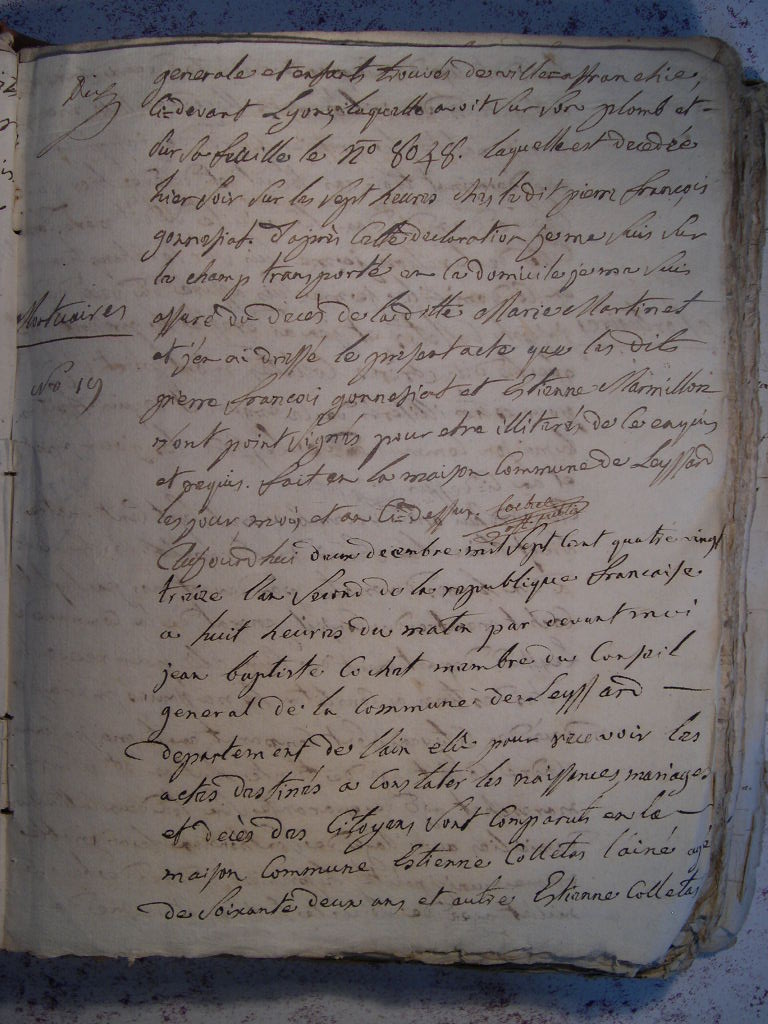 generale et enfants trouvés de villeaffranchie,
ci-devant Lyon, laquelle avoit sur son plomb et -
sur sa feuille le nº 8048. laquelle est decedée
hier soir sur les sept heures chez ledit pierre françois
gonnessiat. d'après cette declaration je me suis sur
le champ transporté en le domicile je me suis
assuré du decès de laditte Marie Martinet
et j'en ai dressé le present acte que les dits
pierre françois gonnessiat et Estienne Marmillon
n'ont point signés pour etre illiterés de ce enquis
et requis. fait en la maison Commune de Leyssard
les jour mois et an Ci-dessus. Cochat
off. public
Mortuaires
No 19
Aujourdhui deux decembre mil sept cent quatre vingt
treize l'an second de la republique francaise
a huit heures du matin par devant moi
jean baptiste Cochat membre du Conseil
general de la Commune de Leyssard —
departement de l'ain elû pour recevoir les
actes destinés a Constater les naissances, mariages
et decès des Citoyens sont Comparuts en la —
maison Commune Estienne Colletas l'ainé agé
de soixante deux ans et autre Estienne Colletas